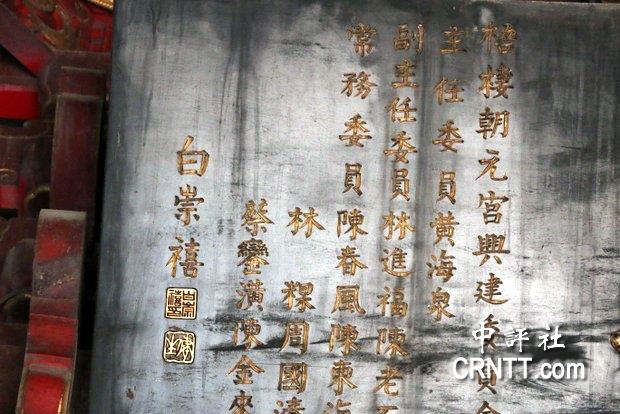 梧棲朝元宮興建委員會
主任委員黃海泉
副主任委員林進福陳老
常務委員陳春風陳東海
林 粿周國清
蔡鑾潢陳金來
白崇禧
中評社
CRNTT.com